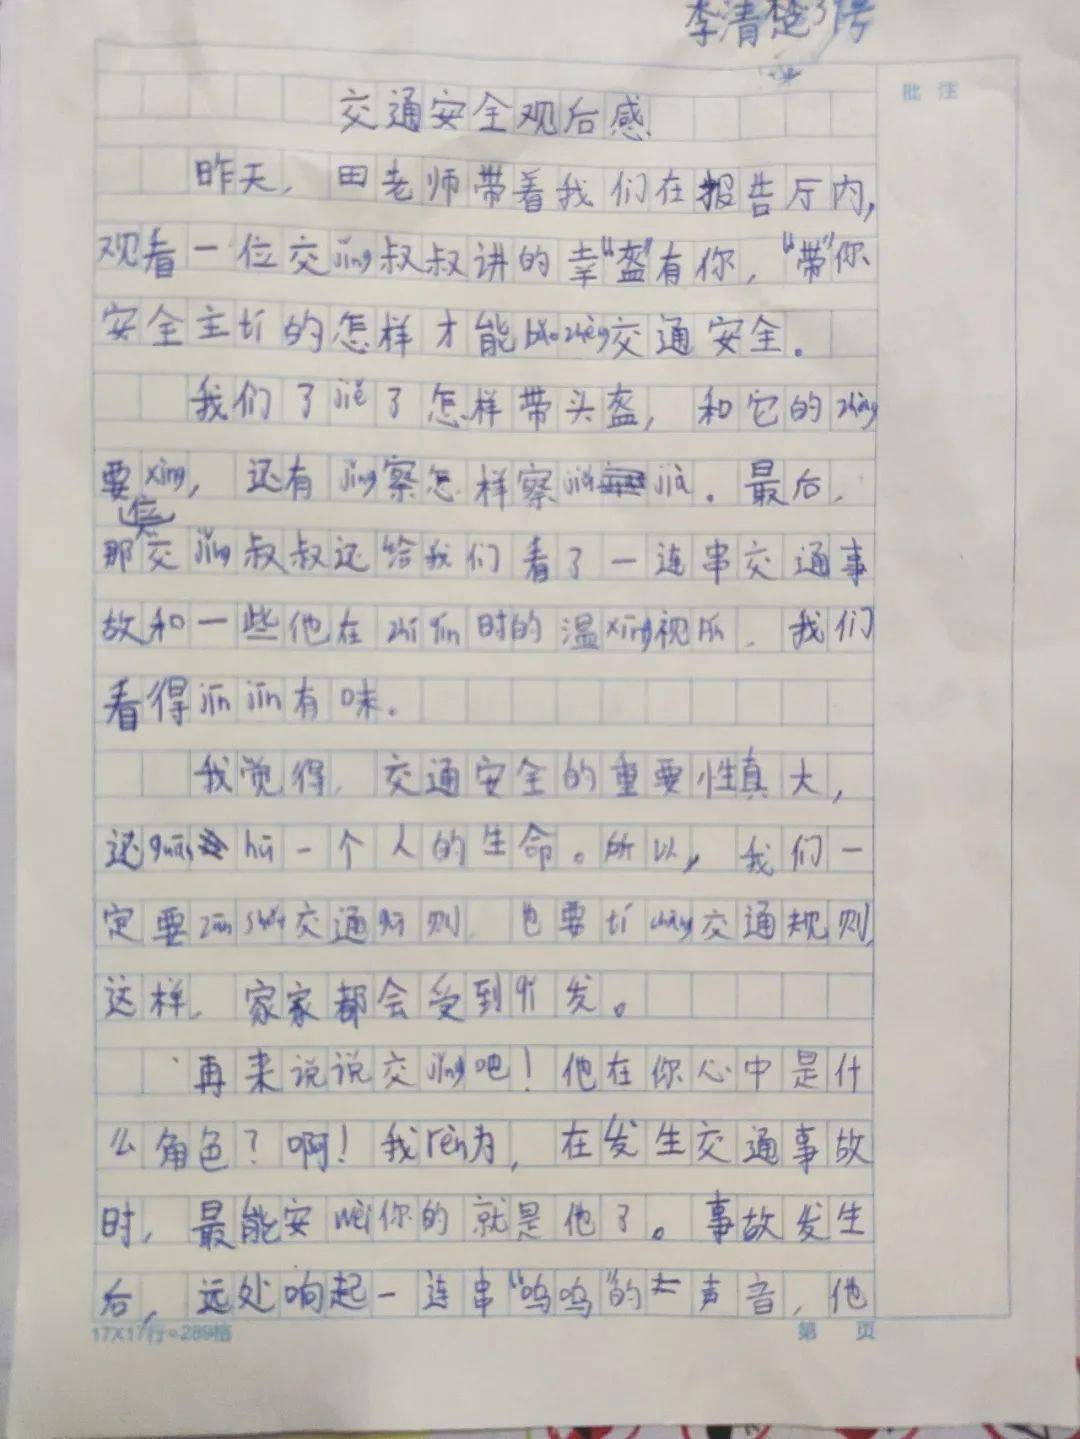 李清楚31号
批 注
交通安全观后感
昨天，田老师带着我们在报告厅内，
观看一位交jǐng叔叔讲的幸“盔”有你，“带”你
安全主tí的怎样才能bǎo zhèng交通安全。
我们了jiě了怎样带头盔，和它的zhòng
要xìng，还有jǐng察怎样察jià jià。最后，
位
那交jǐng叔叔还给我们看了一连串交通事
故和一些他在zhí qín时的温xīng视瓜，我们
看得jīn jīn有味。
我觉得，交通安全的重要性真大，
还guān hū一个人的生命。所以，我们一
定要zūn shǒu交通guī则，也要tí chàng交通规则，
这样，家家都会受到qǐ发。
再来说说交jǐng吧！他在你心中是什
么角色？啊！我rèn为，在发生交通事故
时，最能安wèi你的就是他了。事故发生
后，远处响起一连串“呜呜”的声音，他
17X17行=289格
第 页